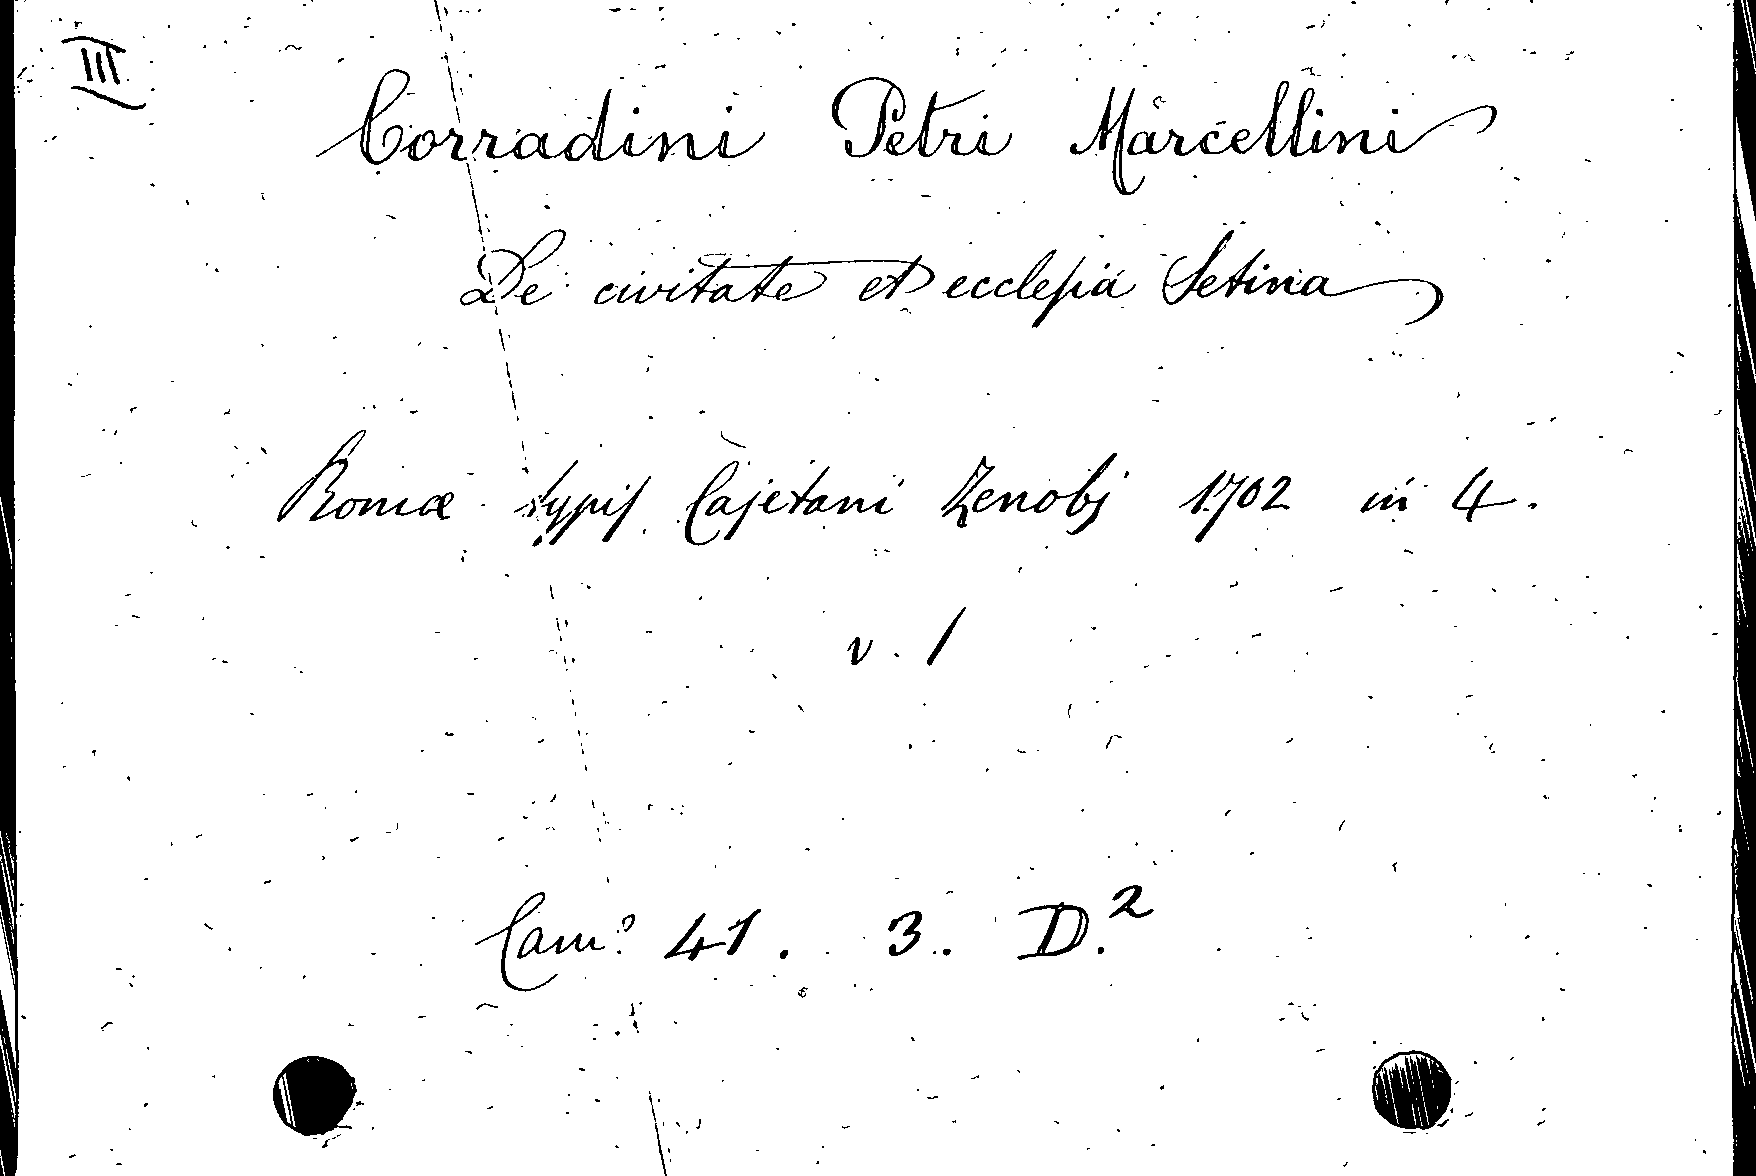 III
Corradini Petri Marcellini
De civitate et ecclesia Setina
Romæ typis Cajetani Zenobj 1702 in 4.
v. 1
Cam.ª 41. 3. D.²